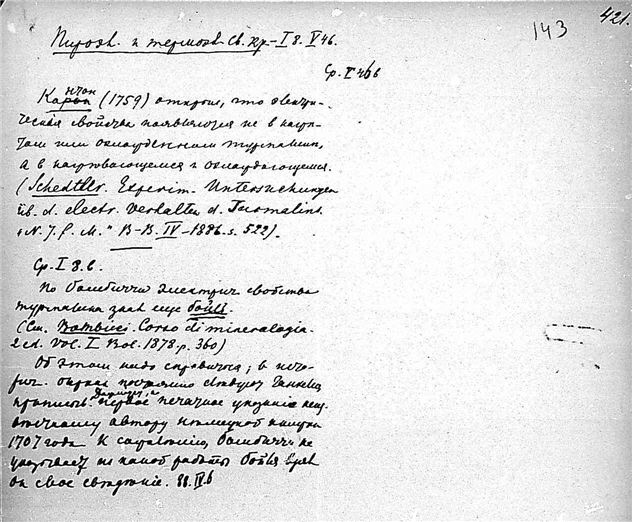 421.
143
Пироэл. и термоэл. св. кр – I 8. V 46.
Ср. I 46 б
Кантон (1759) открыл, что электри-
ческая свойства появляются не в нагре-
том или охлажденном турмалине,
а в нагревающемся и охлаждающемся.
(Schedtler. Experim. Untersuchungen
üb. d. electr. Verhalten d. Turmalins.
"N. J. f. M." B–B. IV – 1886. s. 522).
Ср. I 8. б.
По Бомбиччи электрич свойства
турмалина знал еще Бойль.
(См. Bombicci. Corso di mineralogia.
2 ed. Vol. I Bol. 1878. p. 360)
Об этом надо справиться; в исто-
рич.
первое печатное указание неиз-
вестному автору немецкой книги
1707 года. К сожалению, Бомбиччи не
указывает на какой работы Бойля
он свое